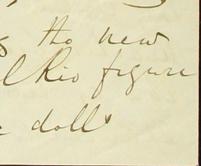 the new
Rio figure
doll